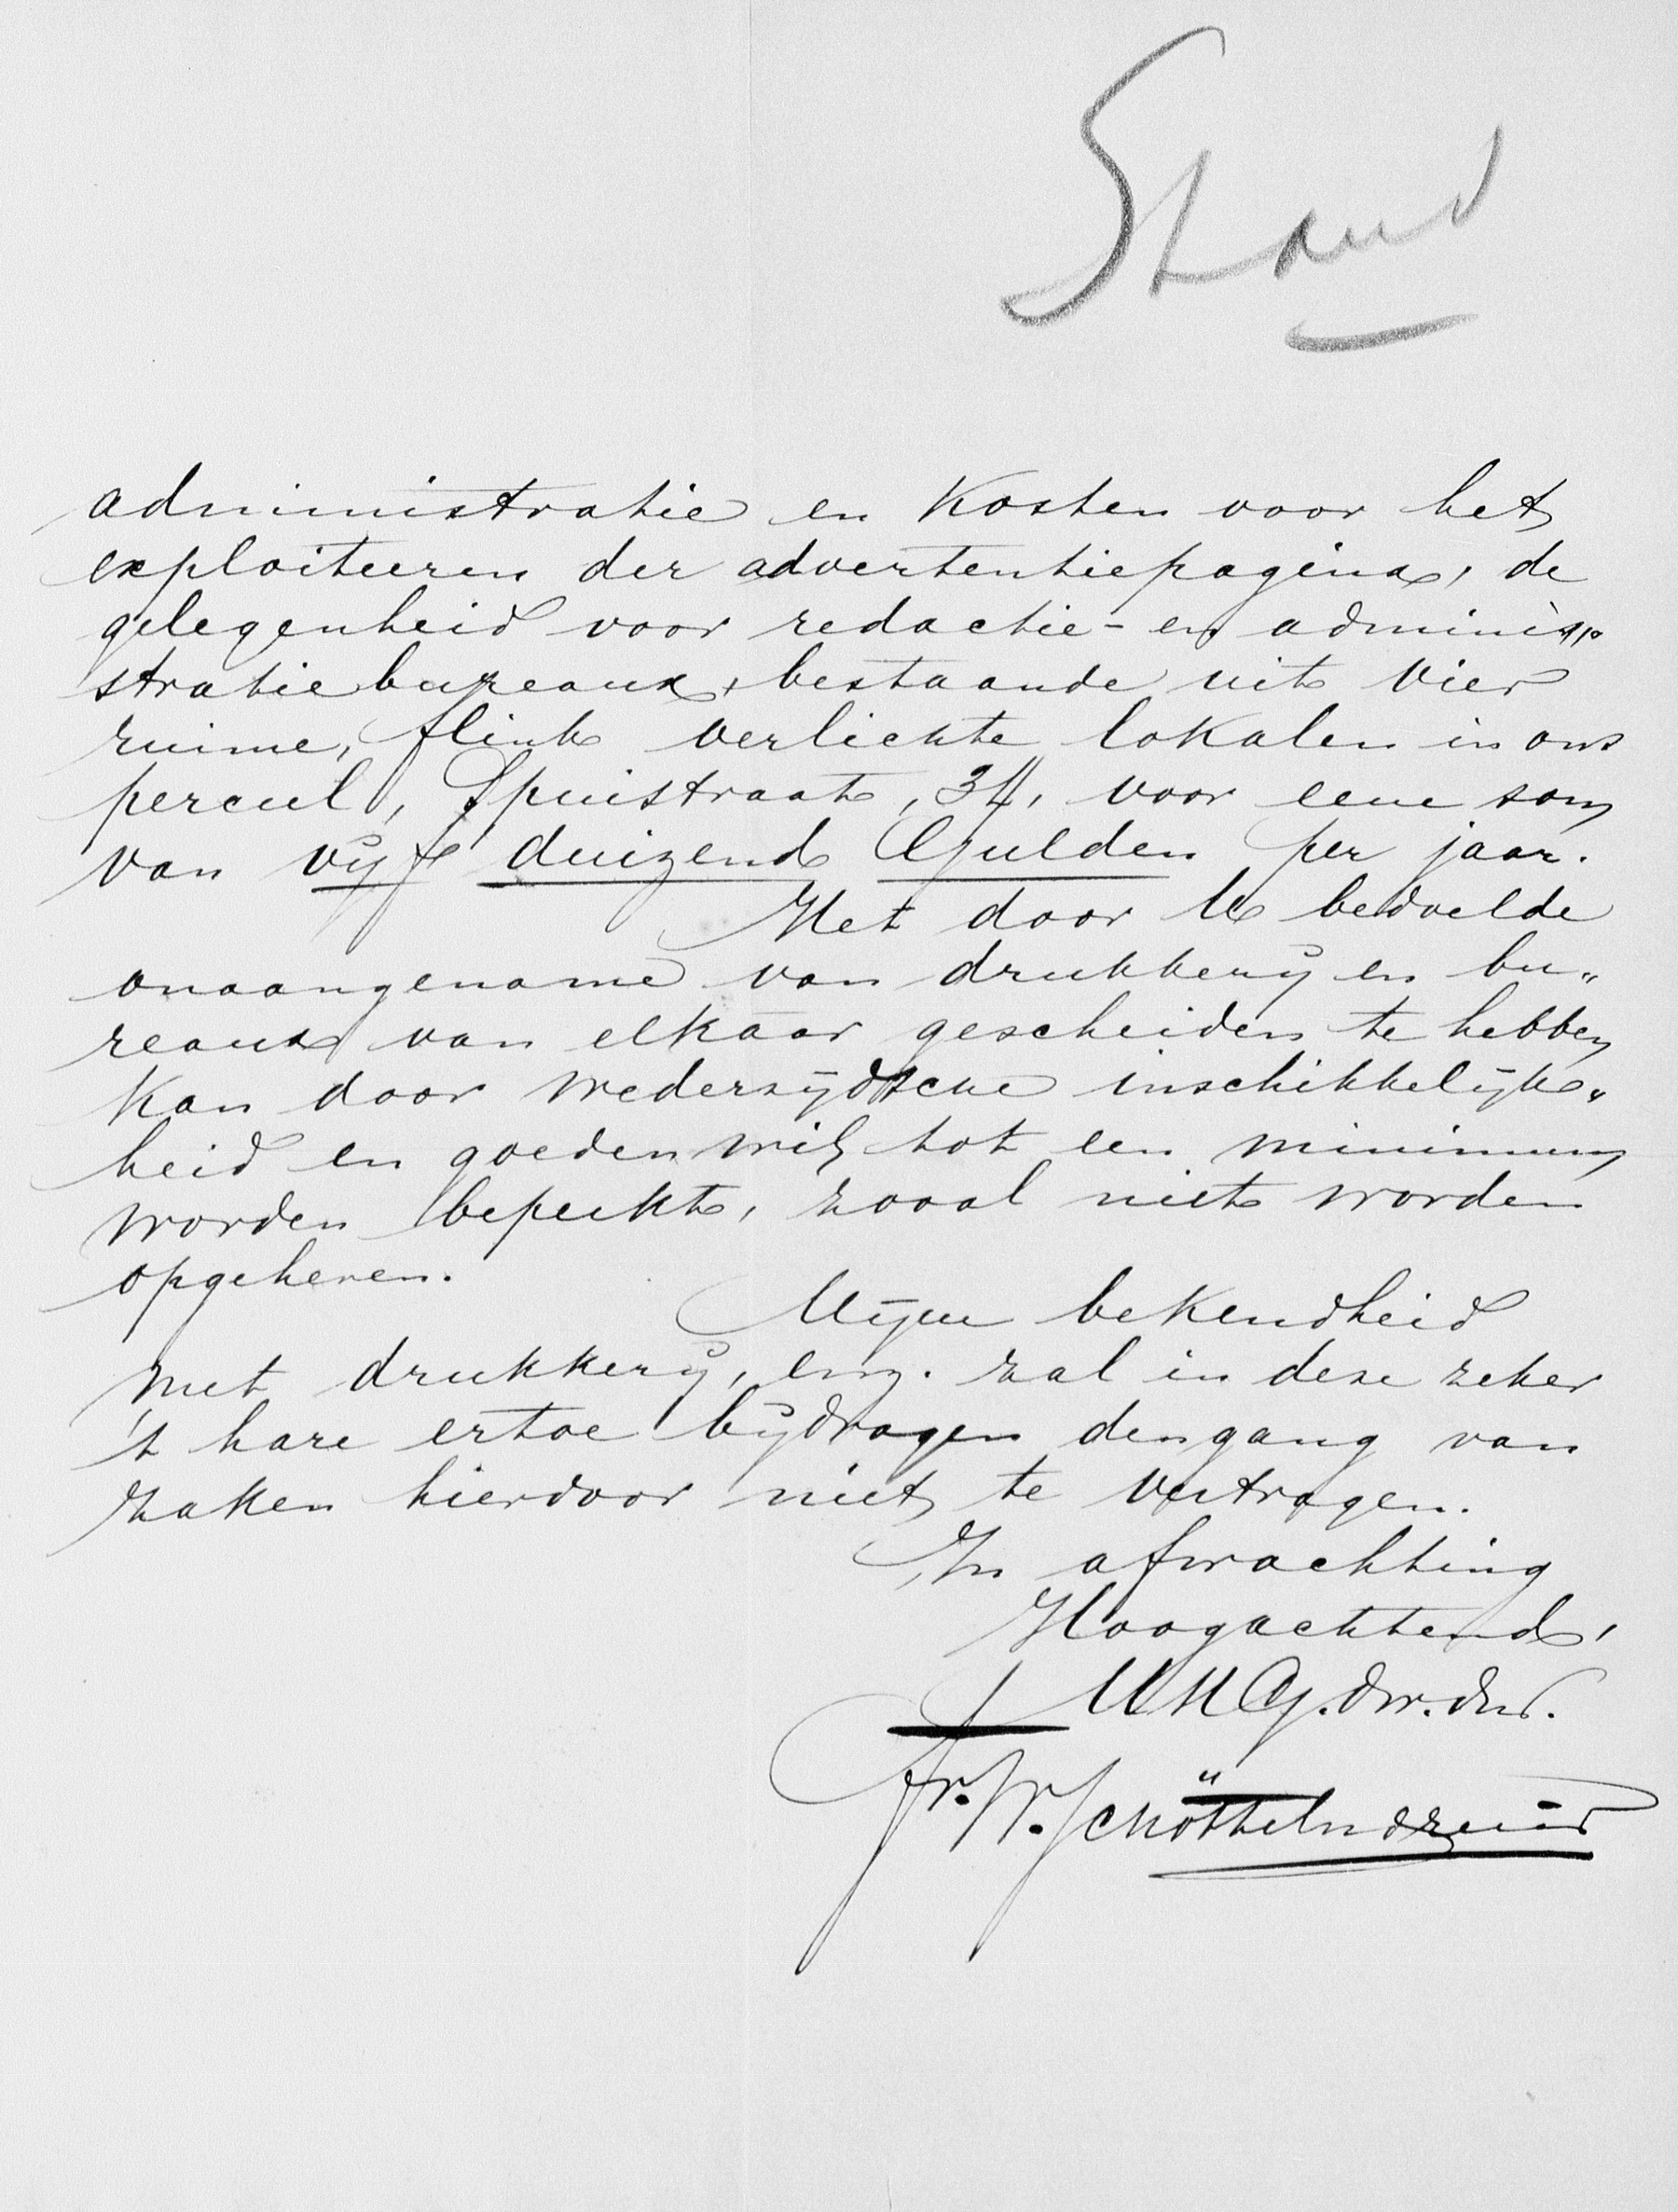 Stand
administratie en Kosten voor het
exploiteeren der advertentiepagina, de
gelegenheid voor redactie- en adminis„
stratiebureaux, bestaande uit vier
ruime, flink verlichte lokalen in ons
perceel, Spuistraat, 34, voor eene som
van vijf duizend Gulden per jaar.
Het door U bedoelde
onaangename van drukkerij en bu„
reaux van elkaar gescheiden te hebben
kan door wederzijdsche inschikkelijk„
heid en goeden wil tot een minimum
worden beperkt, zooal niet worden
opgeheven.
Mijne bekendheid
met drukkerij, enz. zal in deze zeker
't hare ertoe bijdragen den gang van
zaken hierdoor niet te vertragen.
In afwachting
Hoogachtend,
UEG. dw. dr.
Fr. W. Schöttelndreier